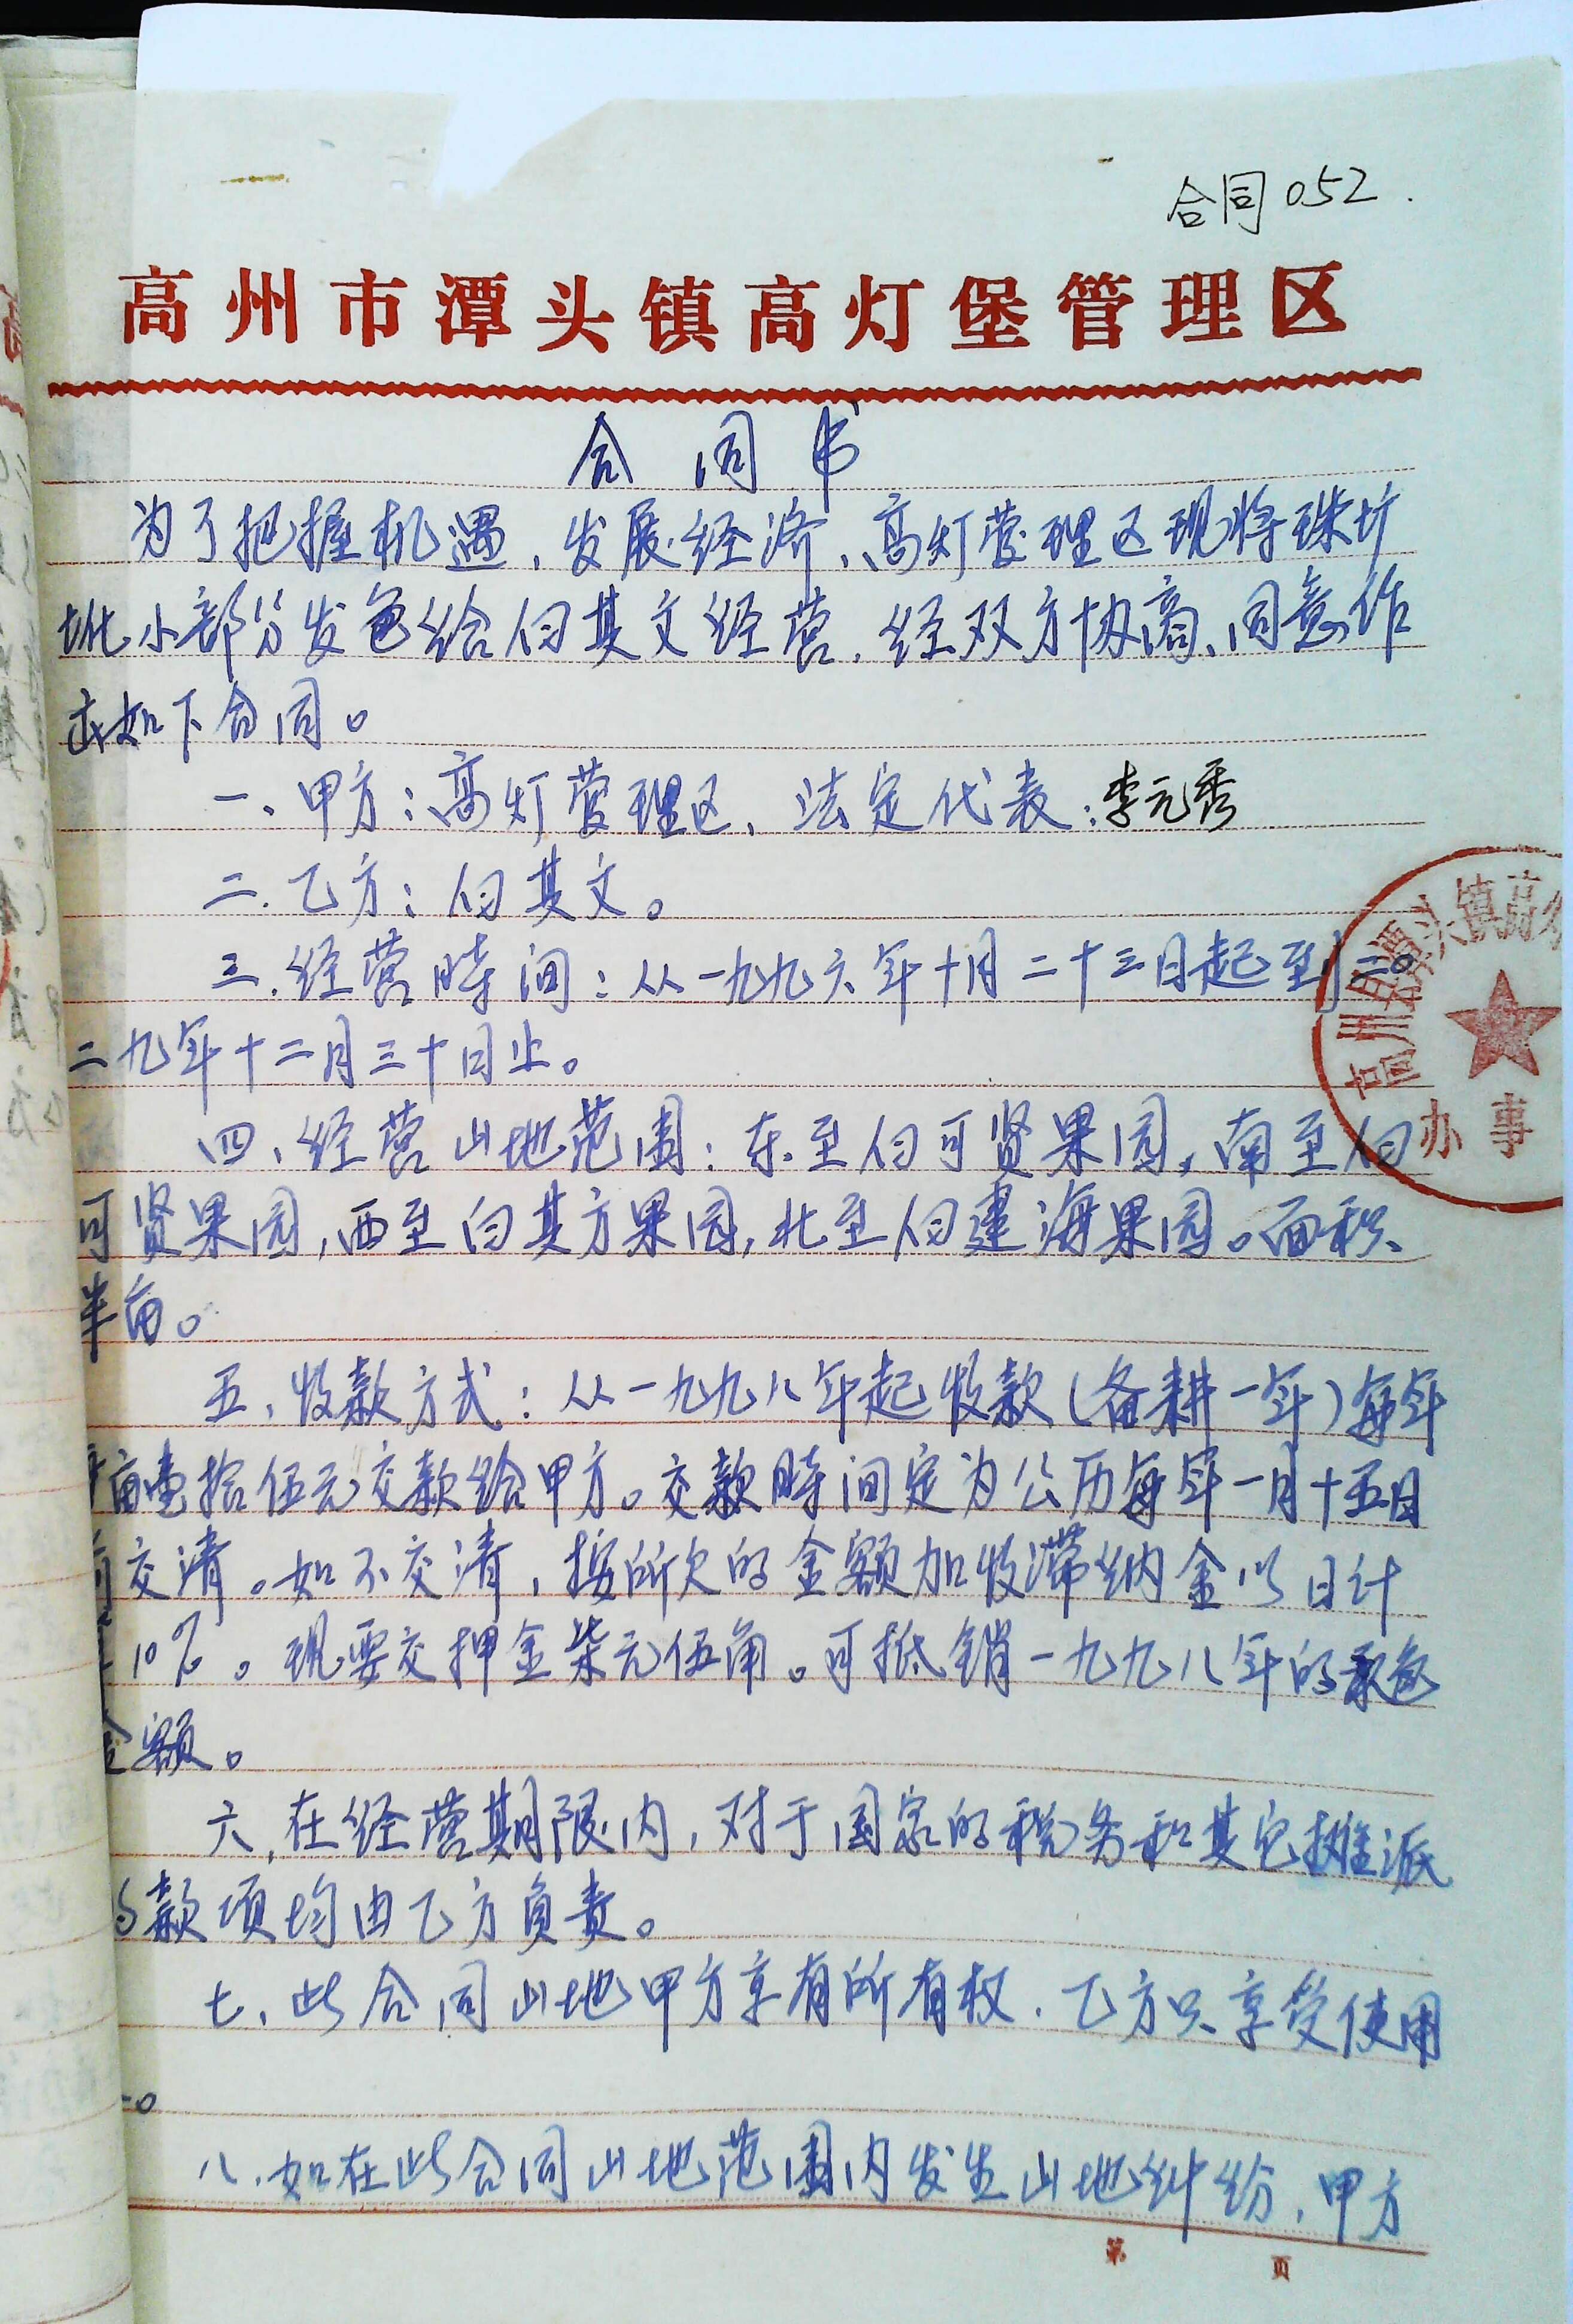 合同052.
高州市潭头镇高灯堡管理区
合同书
为了把握机遇、发展经济、高灯管理区现将珠圹
坉小部分发包给何其文经营.经双方协商、同意作
出如下合同。
一、甲方:高灯管理区、法定代表:李元秀
二.乙方:何其文。
三.经营时间:从一九九六年十月二十三日起至到二0
二九年十二月三十日止。
四、经营山地范围:东至何可贤果园,南至何
可贤果园,西至何其方果园,北至何建海果园。面积
半亩。
五、收款方式:从一九九八年起收款(备耕一年)每年
半亩壹拾伍元交款给甲方。交款时间定为公历每年一月十五日
前交清。如不交清,按所欠的金额加收滞纳金以日计
10%。现要交押金柒元伍角。可抵销一九九八年的承包
金额。
六,在经营期限内,对于国家的税务和其它摊派
的款项均由乙方负责。
七、此合同山地甲方享有所有权.乙方只享受使用
。
八.如在此合同山地范围内发生山地纠纷,甲方
第 页
高州县潭头镇高
办事